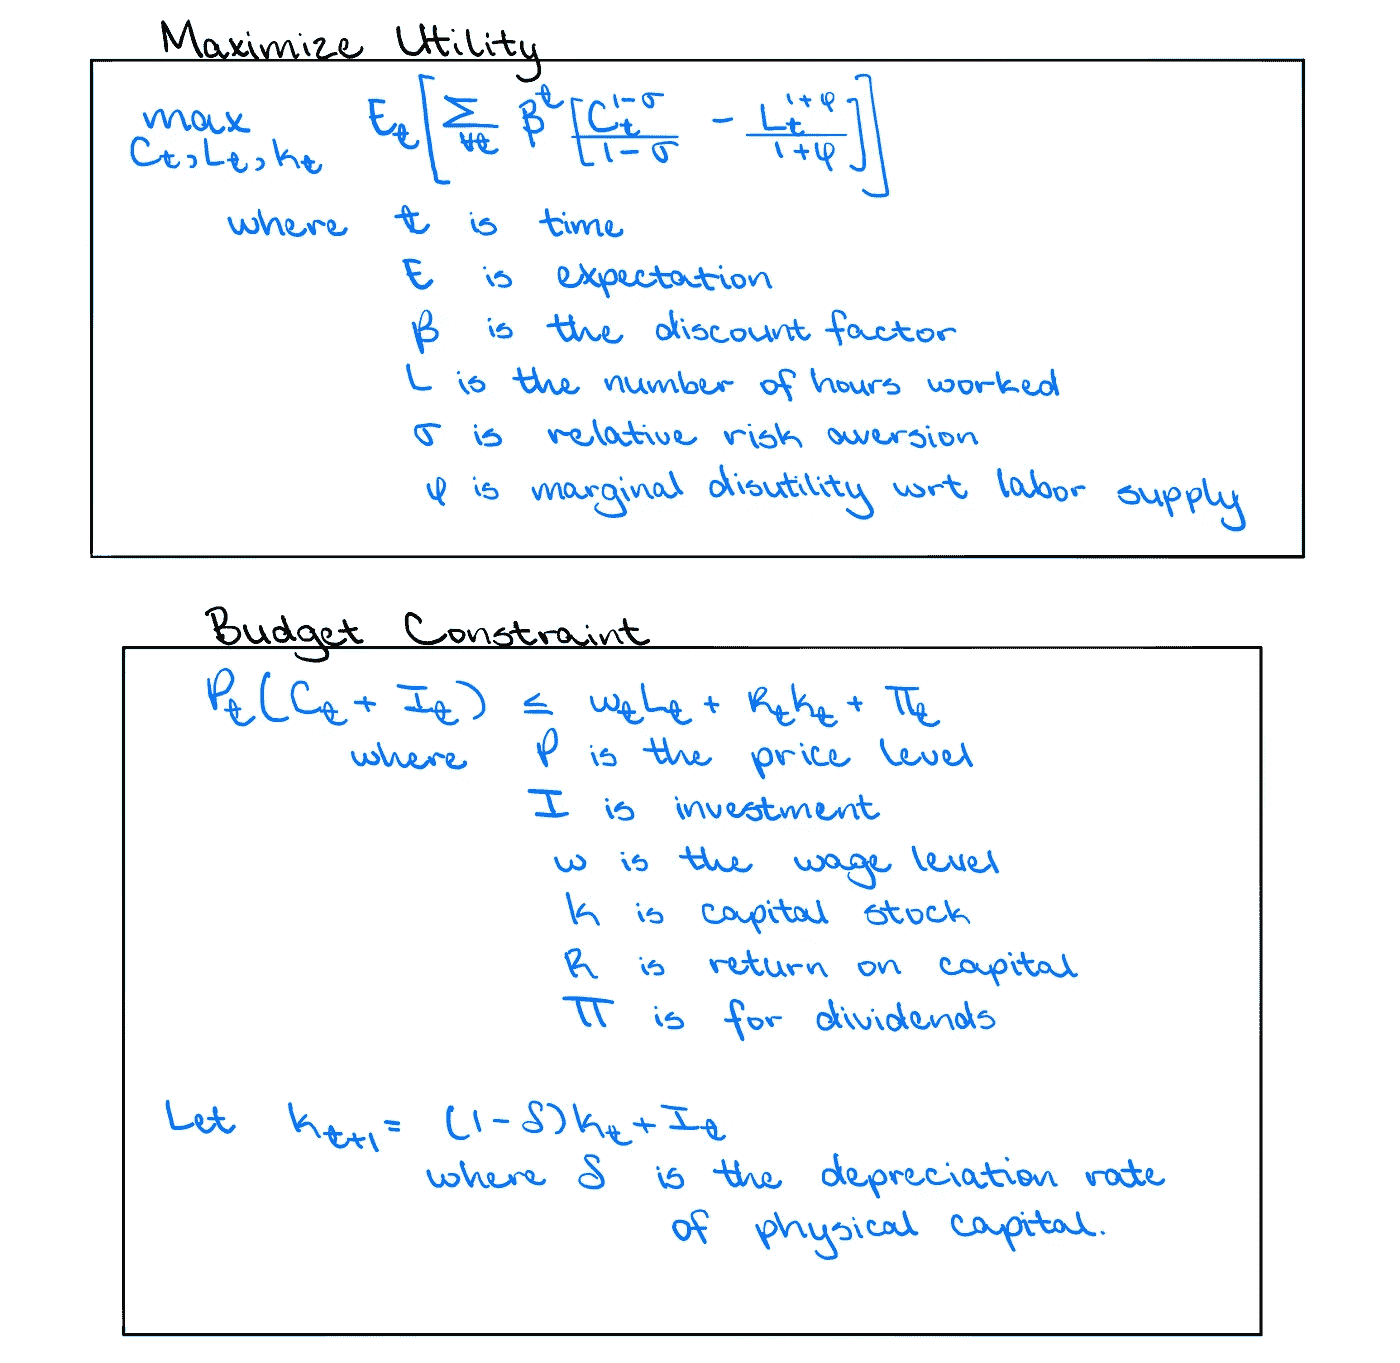 Maximize Utility
max E_t [ Σ β^t [ C_t^{1-σ} / (1-σ) - L_t^{1+φ} / (1+φ) ] ]
C_t, L_t, k_t ∀t
where t is time
E is expectation
β is the discount factor
L is the number of hours worked
σ is relative risk aversion
φ is marginal disutility wrt labor supply
Budget Constraint
P_t (C_t + I_t) ≤ w_t L_t + R_t k_t + Π_t
where P is the price level
I is investment
w is the wage level
k is capital stock
R is return on capital
Π is for dividends
Let k_{t+1} = (1-δ)k_t + I_t
where δ is the depreciation rate
of physical capital.